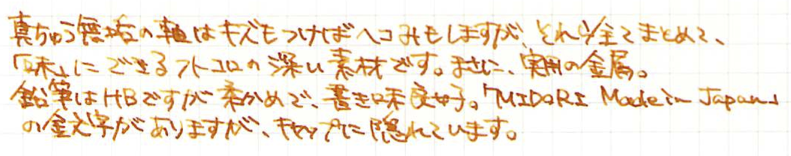 真ちゅう無垢の軸はキズもつけばヘコみもしますが、それら全てまとめて、
「味」にできるフトコロの深い素材です。まさに、実用の金属。
鉛筆はHBですが柔かめで、書き味良好。「MIDORI Made in Japan」
の金文字がありますが、キャップに隠れています。